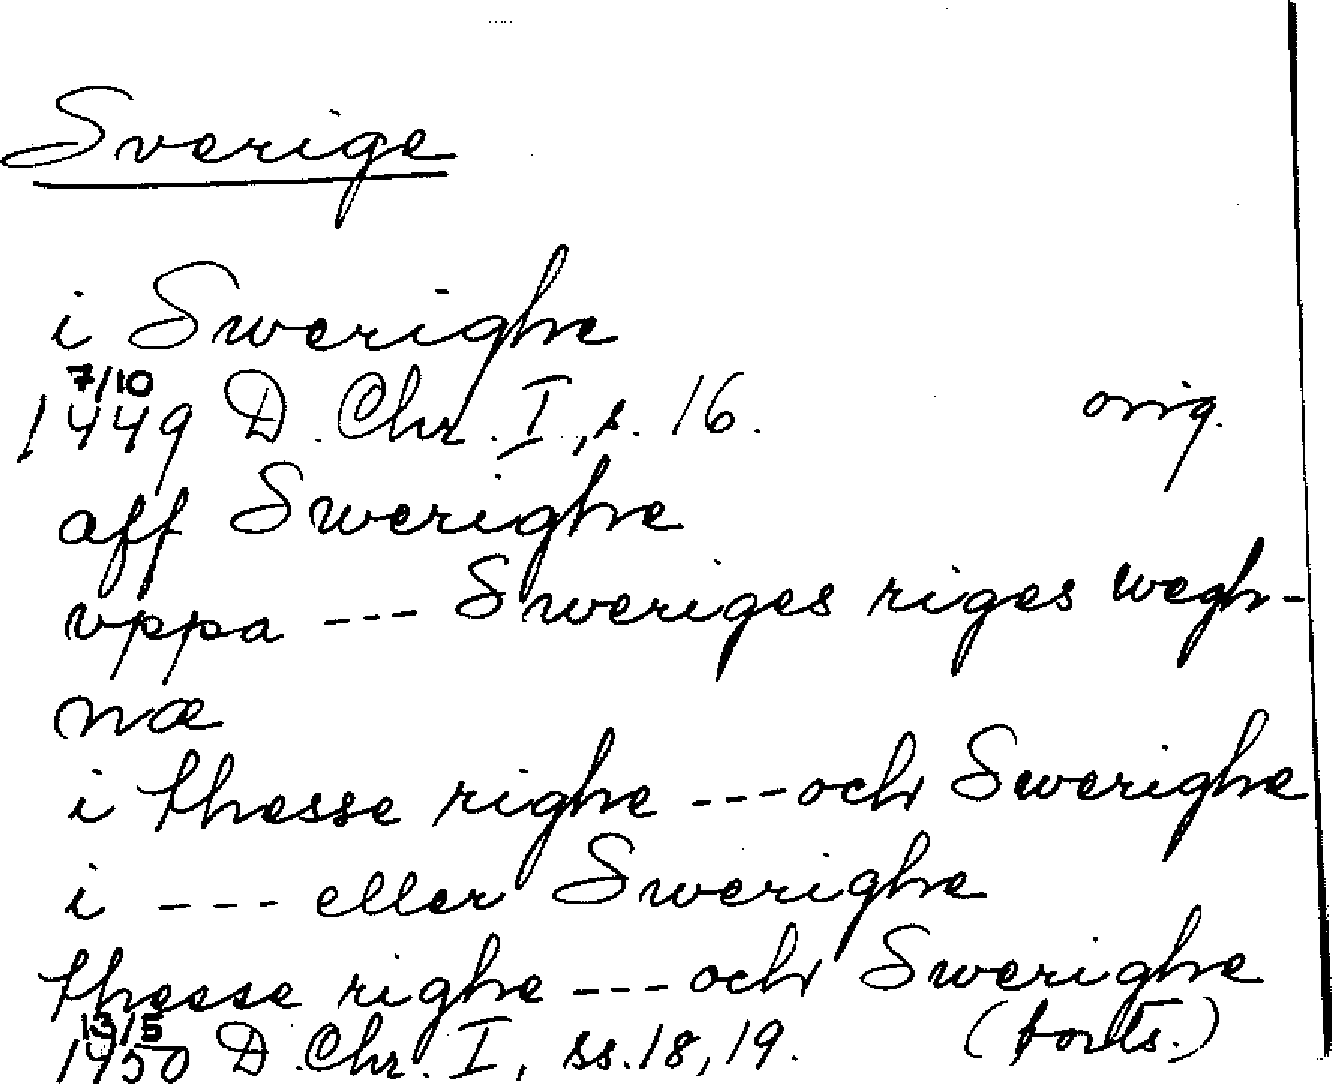 Sverige
i Swerighe
7/10
1449 D. Chr. I., s. 16. orig.
aff Swerighe
vppa --- Sweriges riges wegh-
næ
i thesse righe --- och Swerighe
i --- eller Swerighe
thesse righe --- och Swerighe
13/5
1450 D. Chr. I, ss. 18, 19. (forts.)